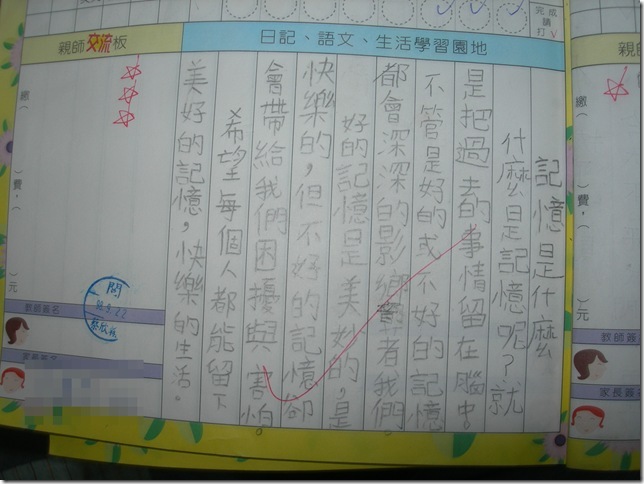 完成
請
打V
親師交流板
日記、語文、生活學習園地
親師
記憶是什麼
什麼是記憶呢？就
是把過去的事情留在腦中。
不管是好的或不好的記憶
都會深深的影響著我們。
好的記憶是美妙的，是
快樂的，但不好的記憶卻
會帶給我們困擾與害怕。
希望每個人都能留下
美好的記憶，快樂的生活。
繳（　）費，（　）元
閱
教師簽名
繳（　）費，（　）元
教師簽
家長簽